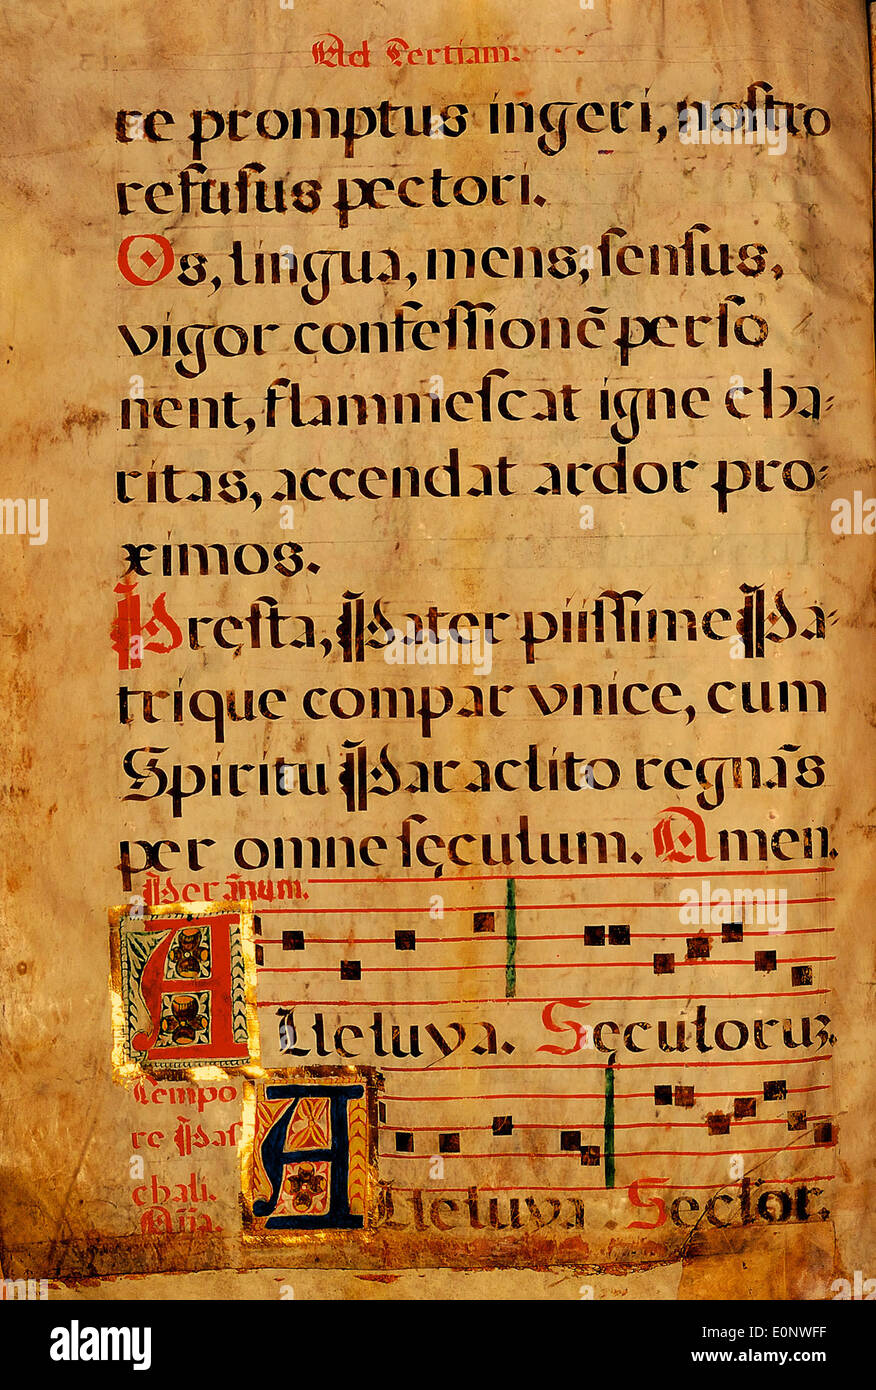 Ad Tertiam.
re promptus ingeri, noſtro
refuſus pectori.
Os, lingua, mens, ſenſus,
vigor confeſſionē perſo
nent, flammeſcat igne cha-
ritas, accendat ardor pro-
ximos.
Pręſta, Pater piiſſime Pa-
trique compar vnice, cum
Spiritu Paraclito regnās
per omne ſęculum. Amen.
Per ānum.
Alleluya. Sęculoruz.
Tempo
re Paſ
chali.
Aña.
Alleluya. Sęctor.
alamy
Image ID: E0NWFF
www.alamy.com